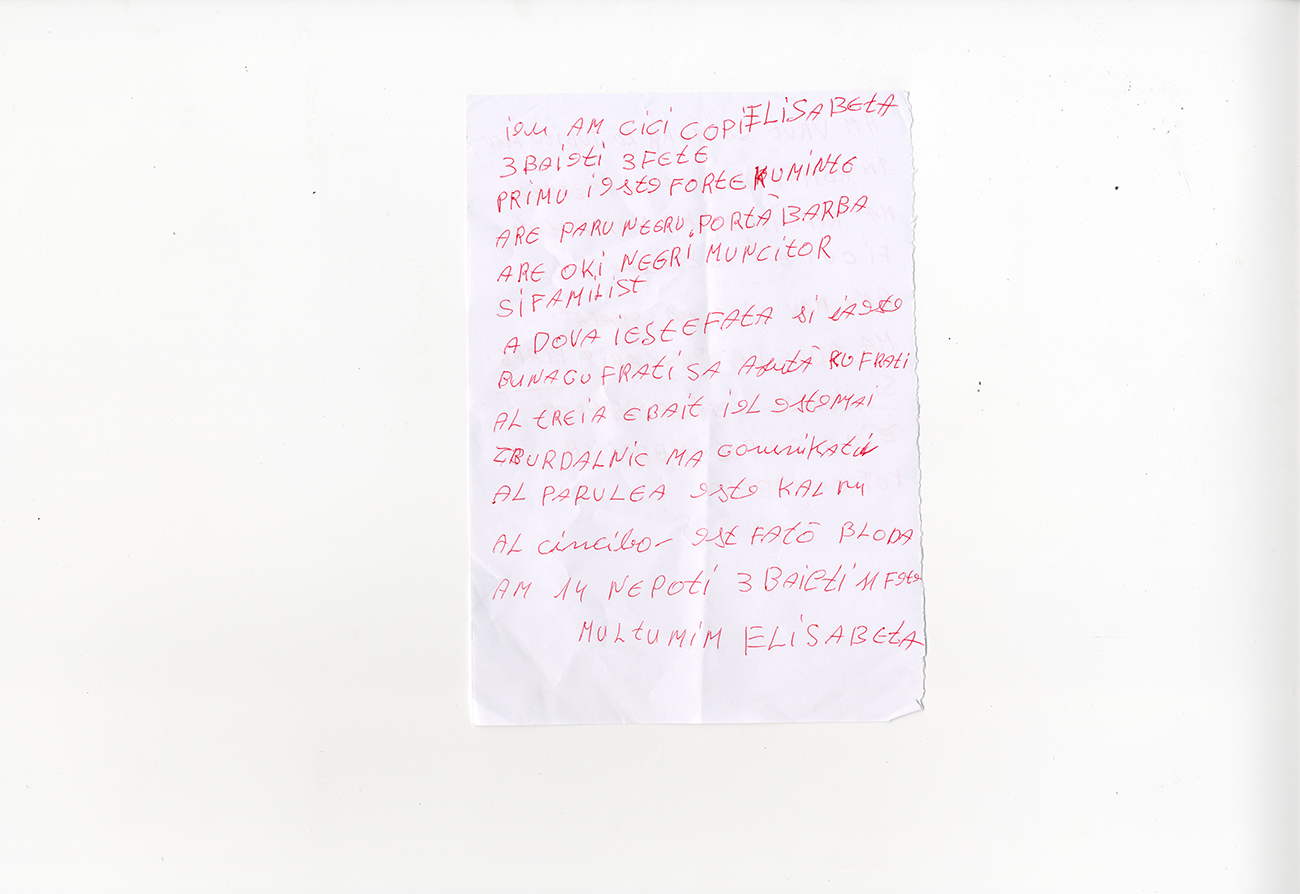 ieu AM CiCi COPii ELiSABEtA
3 BAieti 3 FEtE
PRiMU ieste FORTE KUMiNtE
ARE PARU NEGRU, PORtĂ BARBA
ARE OKi NEGRi MUNCitOR
Si FAMiList
A DOVA iEStE FAtA si iaeste
BUNA CU FRAti SA AjUtĂ KU FRAti
AL tREiA E BAit iel este MAi
ZBURDALNiC MA Comunikativ
AL PARULEA este KALM
AL cincilo- est FAtĂ BLODA
AM 14 NEPOti 3 BAiEti 11 Fete
MULtUMiM ELiSABEtA